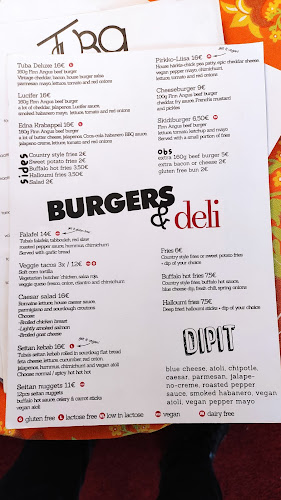 Tuba
Tuba Deluxe 16€
160g Finn Angus beef burger
Vintage cheddar, bacon, house burger salsa
parmesan mayo, lettuce, tomato and red onions
Lucifer 16€
160g Finn Angus beef burger
a lot of cheddar, jalapenos, Lucifer sauce
smoked habanero mayo, lettuce, tomato and red onions
Edna Krabappel 16€
160g Finn Angus beef burger
a lot of butter cheese, jalapenos, Coca-cola habanero BBQ sauce
jalapeno creme, lettuce, tomato and red onions
sapis
Country style fries 2€
Sweet potato fries 2€
Buffalo hot fries 3,50€
Halloumi fries 3,50€
Salad 2€
Pirkko-Liisa 16€
House härkis-chick pea patty, epic cheddar cheese
vegan pepper mayo, chimichurri,
lettuce, tomato and red onions
Cheeseburger 9€
100g Finn Angus beef burger
cheddar, fry sauce, Fanella mustard
and pickles
Skidiburger 6,50€
Finn Angus beef burger
lettuce, tomato, ketchup and mayo
Served with a small portion of fries
obs
extra 160g beef burger 5€
extra bacon or cheese 2€
gluten free bun 2€
BURGERS
& deli
Falafel 14€
Tuba's falafels, tabbouleh, red slaw
roasted pepper sauce, hummus, chimichurri
Served with garlic bread
Veggie tacos 3x / 12€
Soft corn tortilla
Vegetarian butcher 'chicken', salsa roja,
veggie queso fresco, onion, cilantro and chimichurri
Caesar salad 16€
Romaine lettuce, house caesar sauce,
parmigiano and sourdough croutons
Choose:
-Broiled chicken breast
-Lightly smoked salmon
-Broiled goat cheese
Seitan kebab 16€
Tuba's seitan kebab rolled in sourdough flat bread
feta cheese, lettuce, cucumber, red onion,
jalapenos, hummus, chimichurri and vegan aioli
Choose normal / spicy hot hot hot hot
Seitan nuggets 11€
12pcs seitan nuggets
buffalo hot sauce, celery & carrot sticks
vegan aioli
Fries 6€
Country style fries or sweet potato fries
+ dip of your choice
Buffalo hot fries 7,5€
Country style fries, buffalo hot sauce,
blue cheese dip, fresh chili, spring onions
Halloumi fries 7,5€
Deep fried halloumi sticks + dip of your choice
DIPIT
blue cheese, aioli, chipotle,
caesar, parmesan, jalape-
no-creme, roasted pepper
sauce, smoked habanero, vegan
aioli, vegan pepper mayo
G gluten free L lactose free low in lactose vegan M dairy free